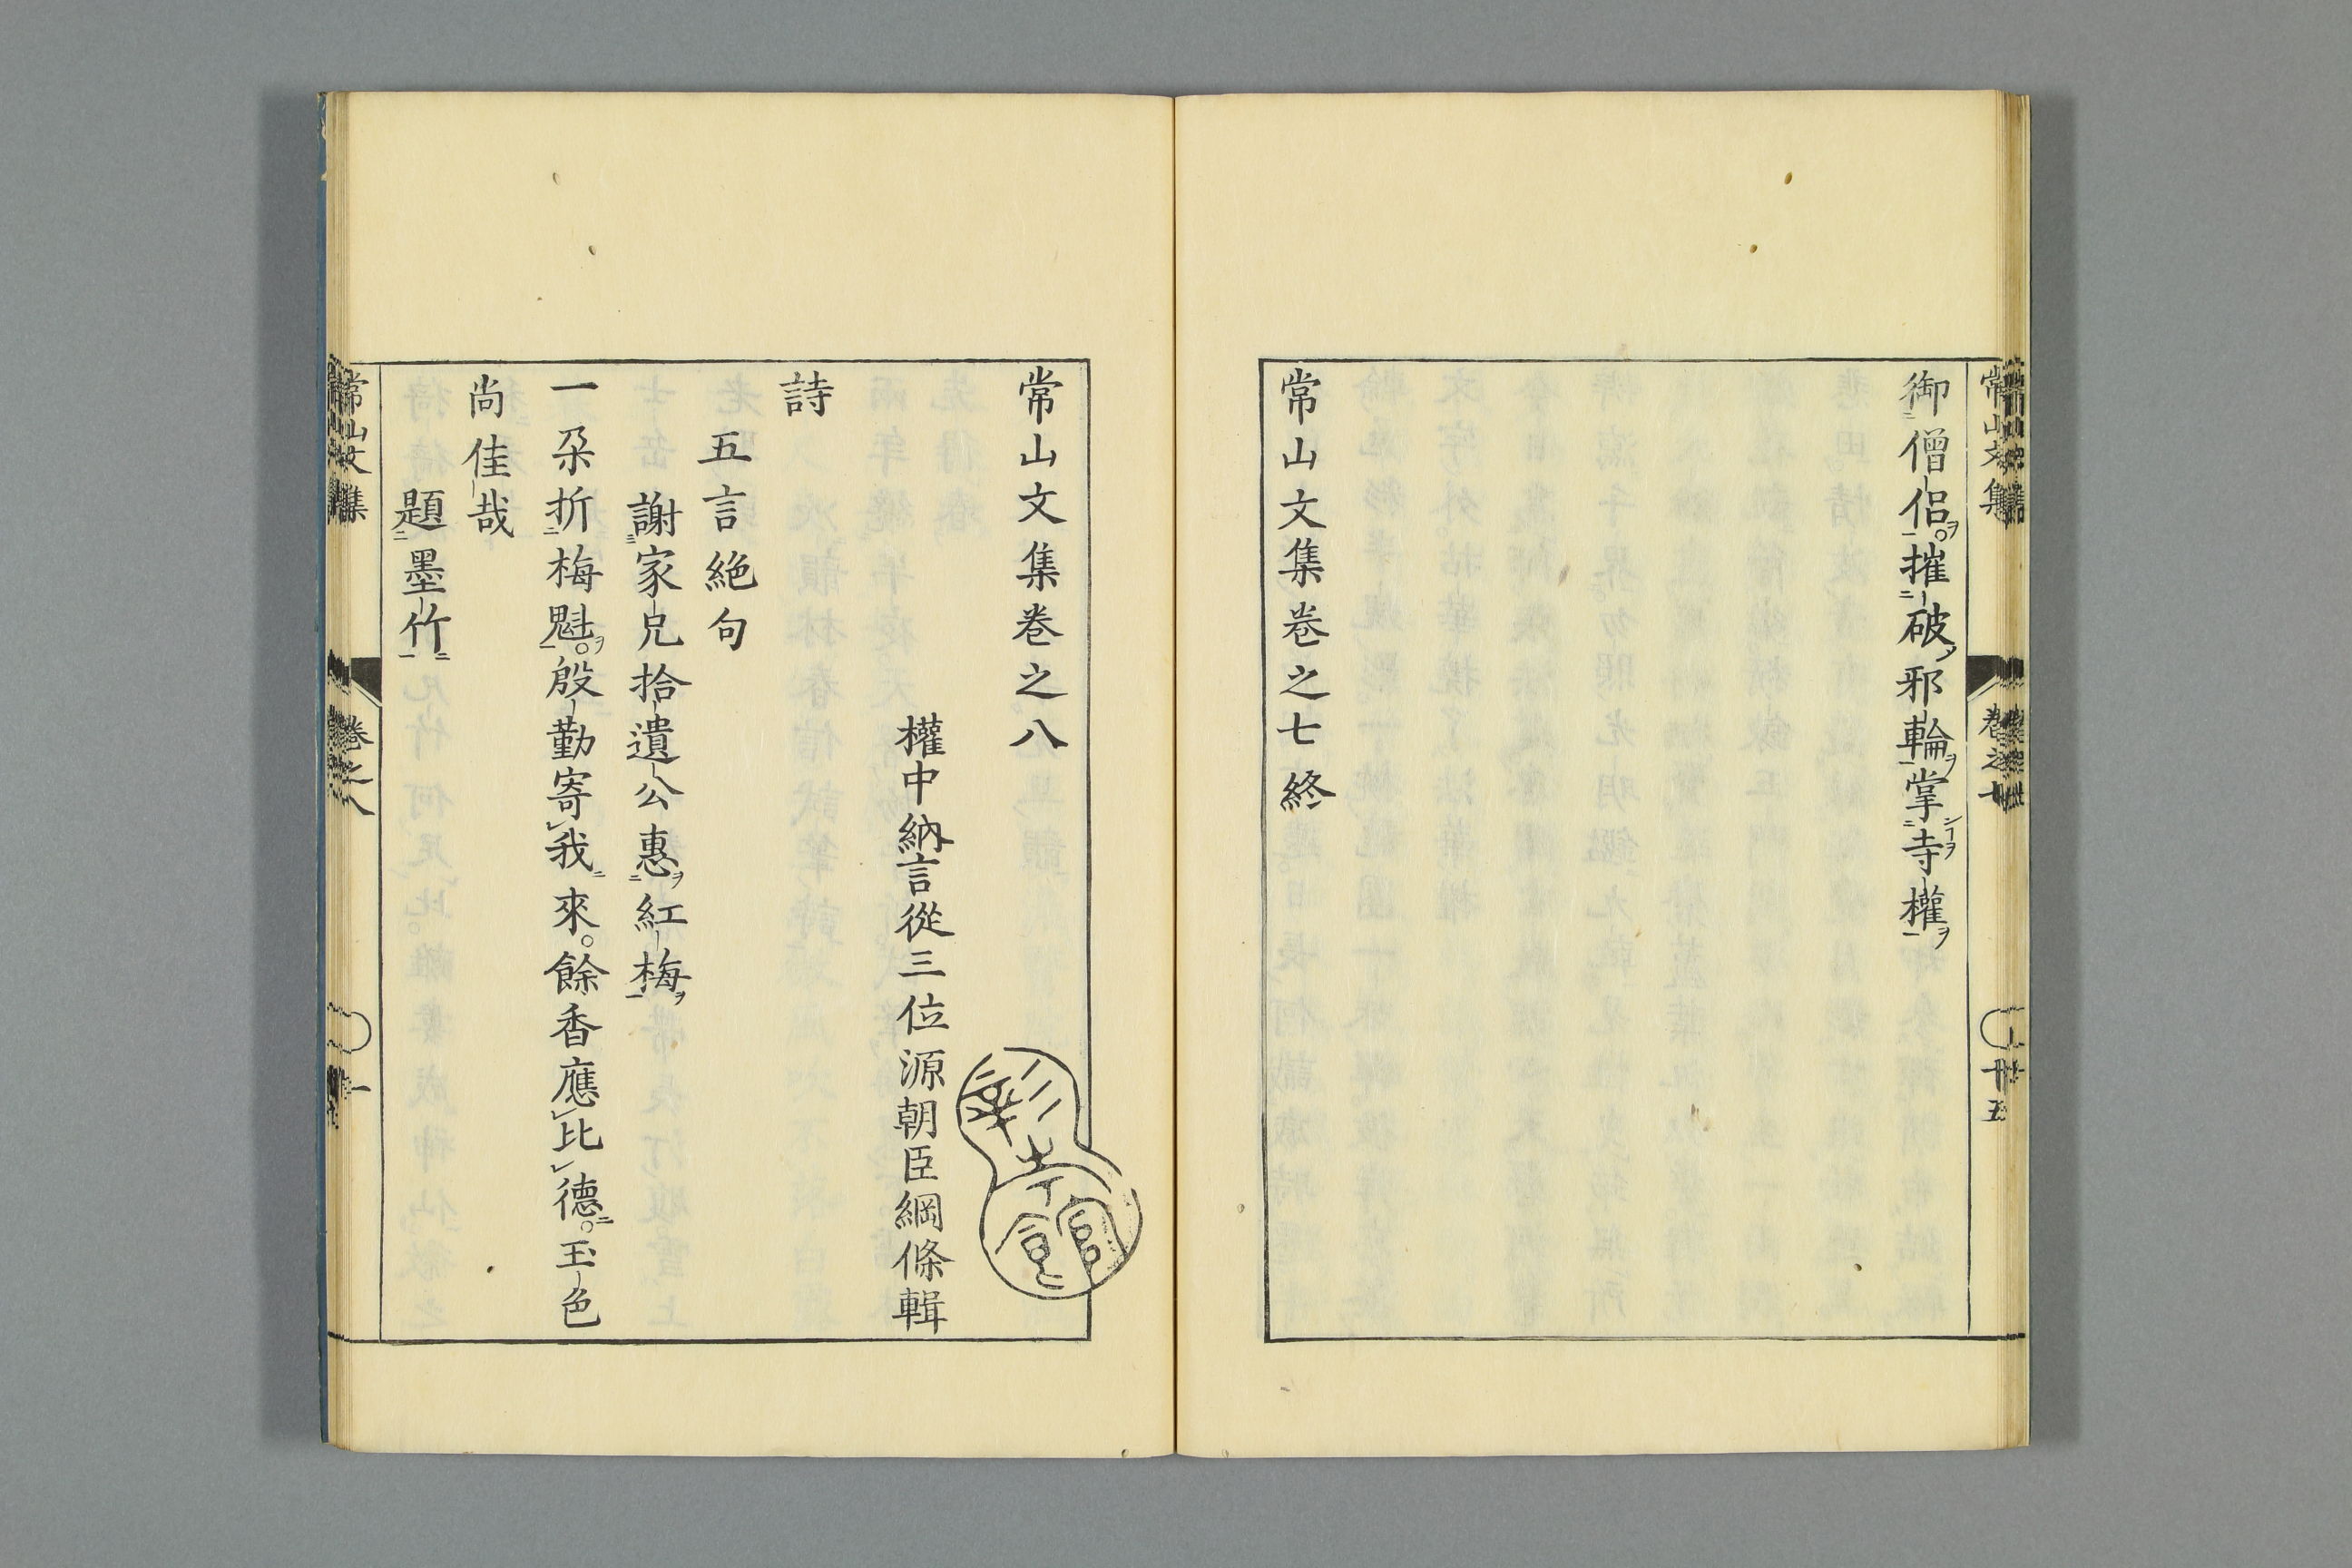 御僧侶。摧破邪輪掌寺權
常山文集卷之七終
常山文集卷之八
權中納言從三位源朝臣綱條輯
詩
五言絶句
謝家兄拾遺公惠紅梅
一朶折梅魁。殷勤寄我來。餘香應比德。玉色
尚佳哉
題墨竹
常山文集
卷之八
一
彰考館